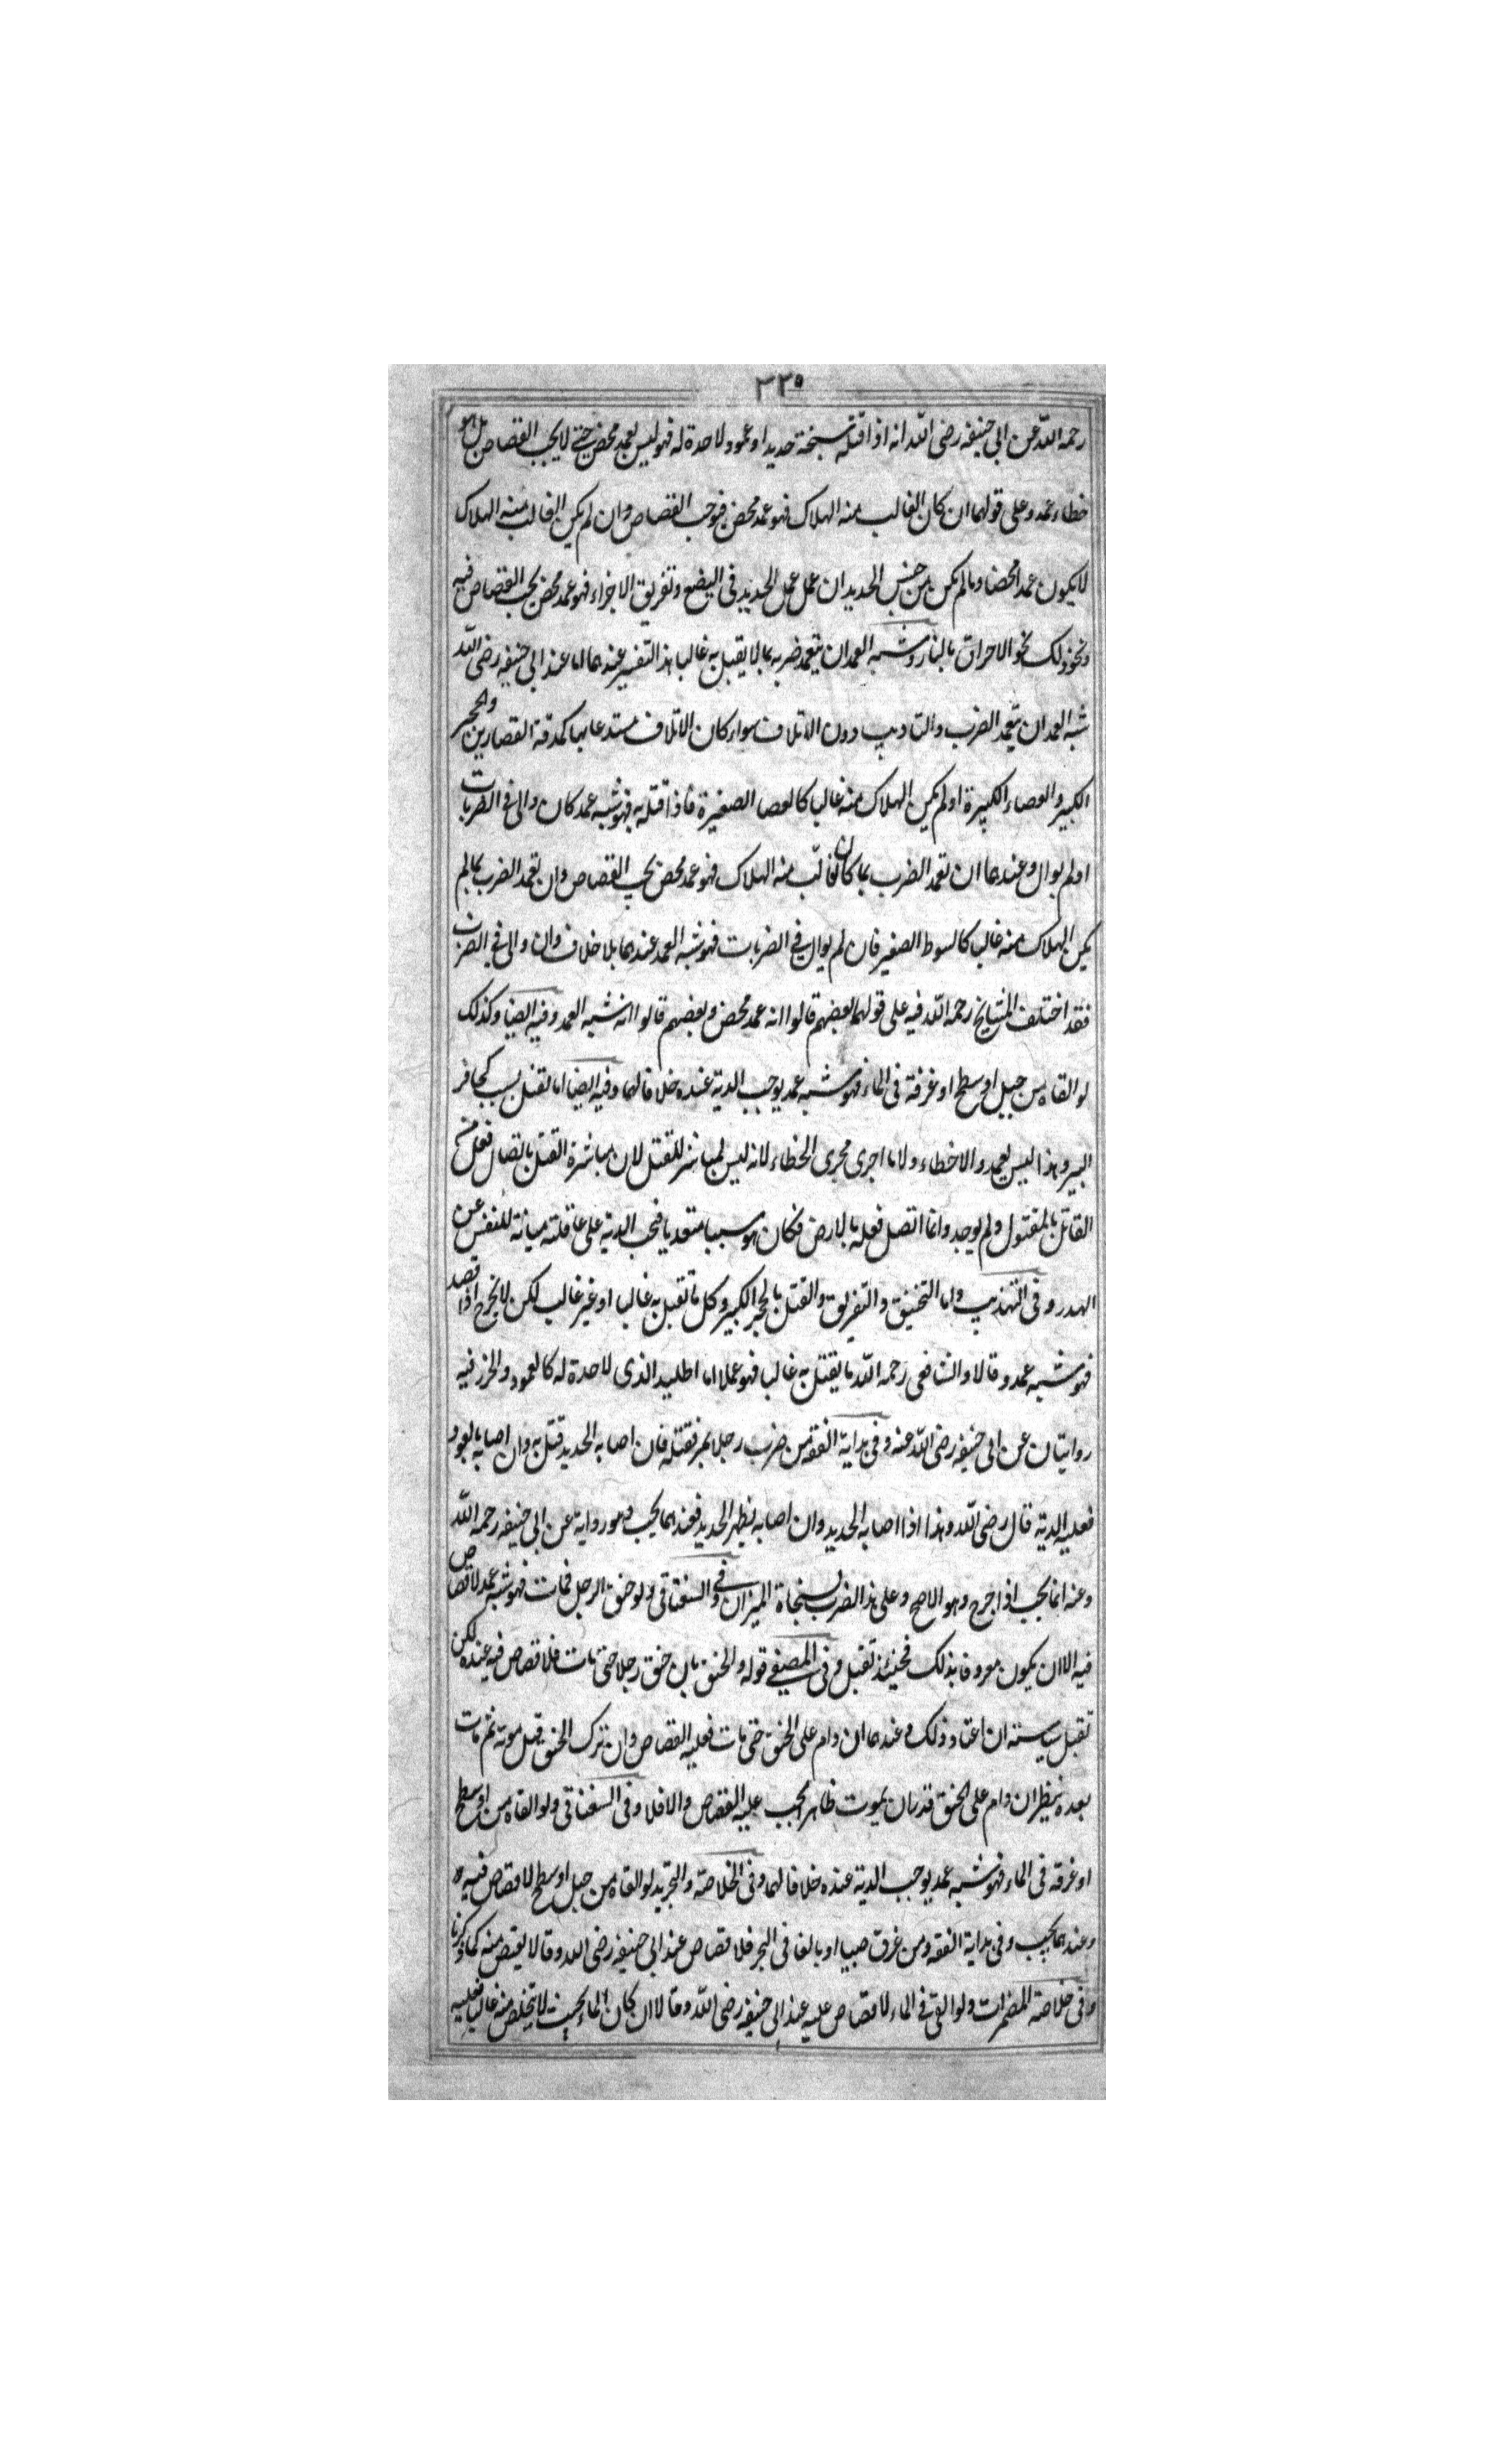 ٣٣٥
رحمه الله عن ابي حنيفه رضى الله انه اذا قتله بسنجة حديد او عمود لا حدة له فهو ليس بعمد محض حتى لا يجب القصاص بل هو
خطاء عمد وعلى قولهما ان كان الغالب منه الهلاك فهو عمد محض فتوجب القصاص وان لم يكن الغالب منه الهلاك
لا يكون عمدا محضا وما لم يكن من جنس الحديد ان عمل عمل الحديد فى البضع وتفريق الاجزاء فهو عمد محض يجب القصاص فيه
ونحو ذلك نحو الاحراق بالنار وشبه العمد ان يتعمد ضربه بما لا يقبل به غالبا هذا التفسير عندهما اما عند ابي حنيفه رضى الله
شبه العمد ان يتعمد الضرب والتاديب دون الاتلاف سواء كان الاتلاف مستدعابها كمدقة القصارين والحجر
الكبير والعصاء الكبيرة او لم يكن الهلاك منه غالبا كالعصا الصغيرة فاذا قتله به فهو شبه عمد كان والى فى الضربات
او لم يوال وعندهما ان تعمد الضرب بما كان الغالب منه الهلاك فهو عمد محض يجب القصاص وان تعمد الضرب بما لم
يكن الهلاك منه غالبا كالسوط الصغير فان لم يوال في الضربات فهو شبه العمد عندهما بلا خلاف وان والى فى الضربات
فقد اختلف المشايخ رحمه الله فيه على قولهما بعضهم قالوا انه عمد محض وبعضهم قالوا انه شبه العمد وفيه ايضا وكذلك
لو القاه من جبل او سطح او غرفة فى الماء فهو شبه عمد يوجب الدية عنده خلافا لهما وفيه ايضا اما لقتل بسبب كحافر
البير وهذا ليس بعمد ولا خطاء ولا ما اجرى مجرى الخطاء لانه ليس بمباشر للقتل لان مباشرة القتل باتصال فعل من
القاتل بالمقتول ولم يوجد وانما اتصل فعله بالارض فكان هو سببا متعديا فيجب الدية على عاقلته صيانة للنفس عن
الهدر وفى التهذيب واما التخنيق والتفريق والقتل بالحجر الكبير وكل ما تقبل به غالبا او غير غالب لكن لا يجرح اذا قصد
فهو شبه عمد وقالا والشافعى رحمه الله ما يقتل به غالبا فهو عملا اما اطليد الذى لا حدة له كالعمود والخرز فيه
روايتان عن ابى حنيفه رضى الله عنه وفى بداية الفقه من ضرب رجلا بمر فقتله فان اصابه الحديد قتل به وان اصابه بالعود
فعليه الدية قال رضى الله وهذا اذا اصابه الحديد وان اصابه بظهر الحديد فعندهما يجب وهو رواية عن ابى حنيفه رحمه الله
وعنه انما يجب اذا جرح وهو الاصح وعلى هذا الضرب بسنجاة الميزان وفي السغناقى ولو خنق الرجل فمات فهو شبه عمد لا قصاص
فيه الا ان يكون معروفا بذلك فحينئذ تقبل وفى المصيفى قوله والخنق بان خنق رجلا حتى مات فلا قصاص فيه عنده لكن
تقبل سياسته ان اعتاد ذلك وعندهما ان دام على الخنق حتى مات فعليه القصاص وان ترك الخنق قبل موته ثم مات
بعده ينظر ان دام على الخنق قدر ان يموت ظاهرا يجب عليه القصاص والا فلا وفى السغناقى ولو القاه من او سطح
او غرقه فى الماء فهو شبه عمد يوجب الدية عنده خلافا لهما وفى الخلاصة والتجريد لو القاه من جبل او سطح لا قصاص فيه
وعندهما يجب وفى بداية الفقه ومن غرق صبيا او بالغا فى البحر فلا قصاص عند ابي حنيفه رضى الله وقالا يقتص منه كما ذكرنا
وفى خلاصة المضمرات ولو القى فى الماء لا قصاص عليه عند ابى حنيفه رضى الله وقالا ان كان الماء بحيث لا يتخلص منه غالبا فعليه